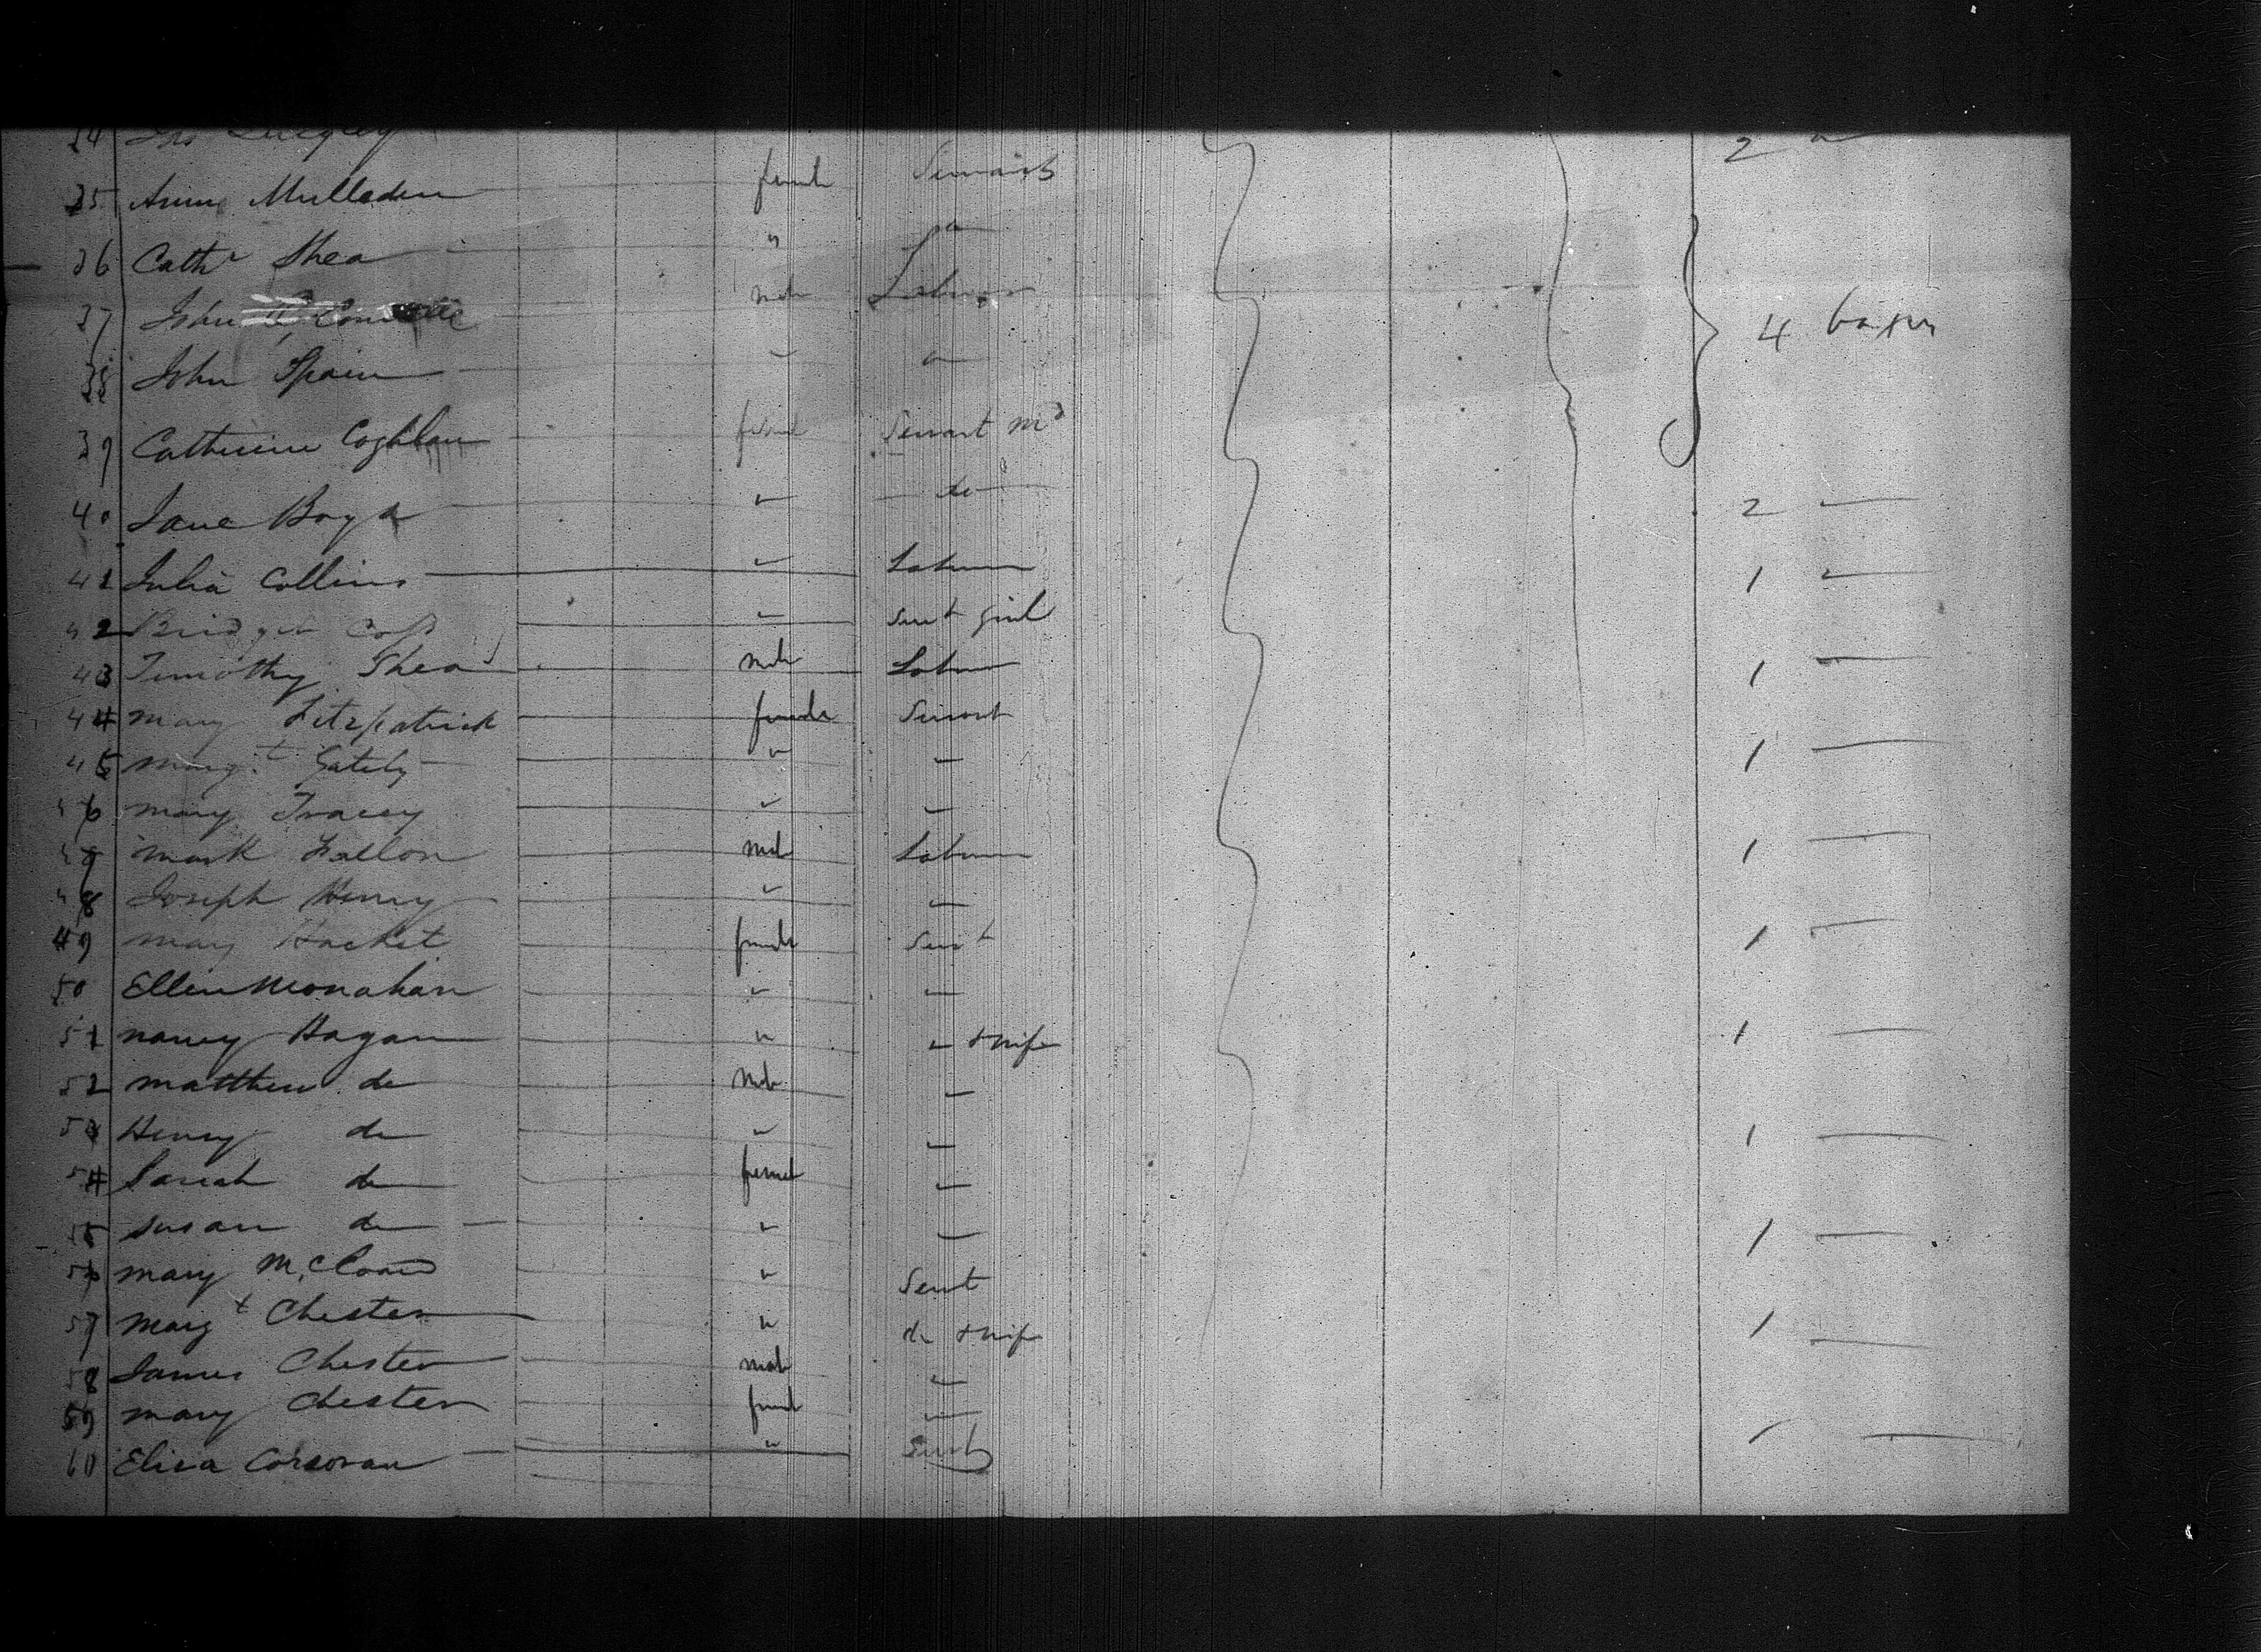 35 Anne Mulleden female Servant
36 Cathe Shea " do
37 John male Labour
38 John Spain " "
39 Catherine Coghlan female Servant md 4 boxes
40 Jane Boyd " do 2 "
41 Julia Collins " Labour 1 "
42 Bridget " Servt girl
43 Timothy Shea male Labour 1
44 Mary Fitzpatrick female Servant
45 Margt Gately " " 1
46 Mary Tracey " "
47 Mark Fallon male Labour 1
48 Joseph Henry " "
49 Mary Hacket female Servt 1
50 Ellen Monahan " "
51 Nancy Hagan " " & wife 1
52 Matthew do male "
53 Henry do " " 1
54 Sarah do female "
55 Susan do " " 1
56 Mary " Servt
57 Margt Chester " do & wife 1
58 James Chester male "
59 Mary Chester female "
60 Eliza Corcoran " Servt 1